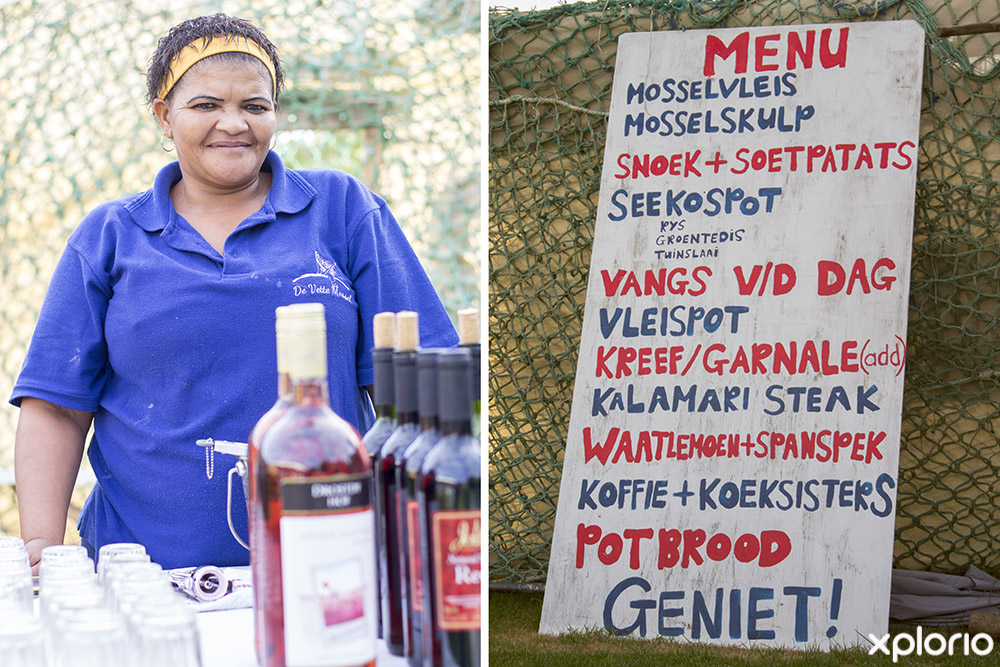 De Vette Mossel
MENU
MOSSELVLEIS
MOSSELSKULP
SNOEK + SOETPATATS
SEEKOSPOT
RYS
GROENTEDIS
TUINSLAAI
VANGS V/D DAG
VLEISPOT
KREEF/GARNALE (add)
KALAMARI STEAK
WAATLEMOEN + SPANSPEK
KOFFIE + KOEKSISTERS
POTBROOD
GENIET!
xplorio